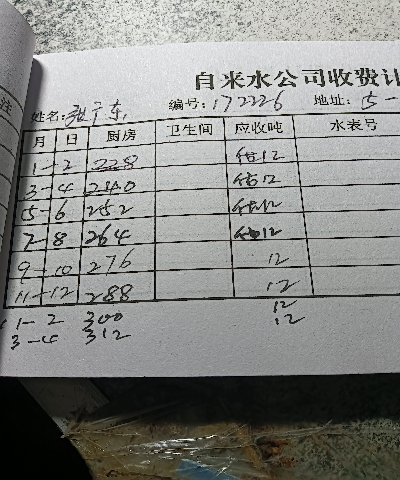 自来水公司收费计
姓名: 编号: 172226 地址: 15-
月 日 厨房 卫生间 应收吨 水表号
1-2 228 估12
3-4 240 估12
5-6 252 估12
7-8 264 估12
9-10 276 12
11-12 288 12
1-2 300 12
3-4 312 12
注